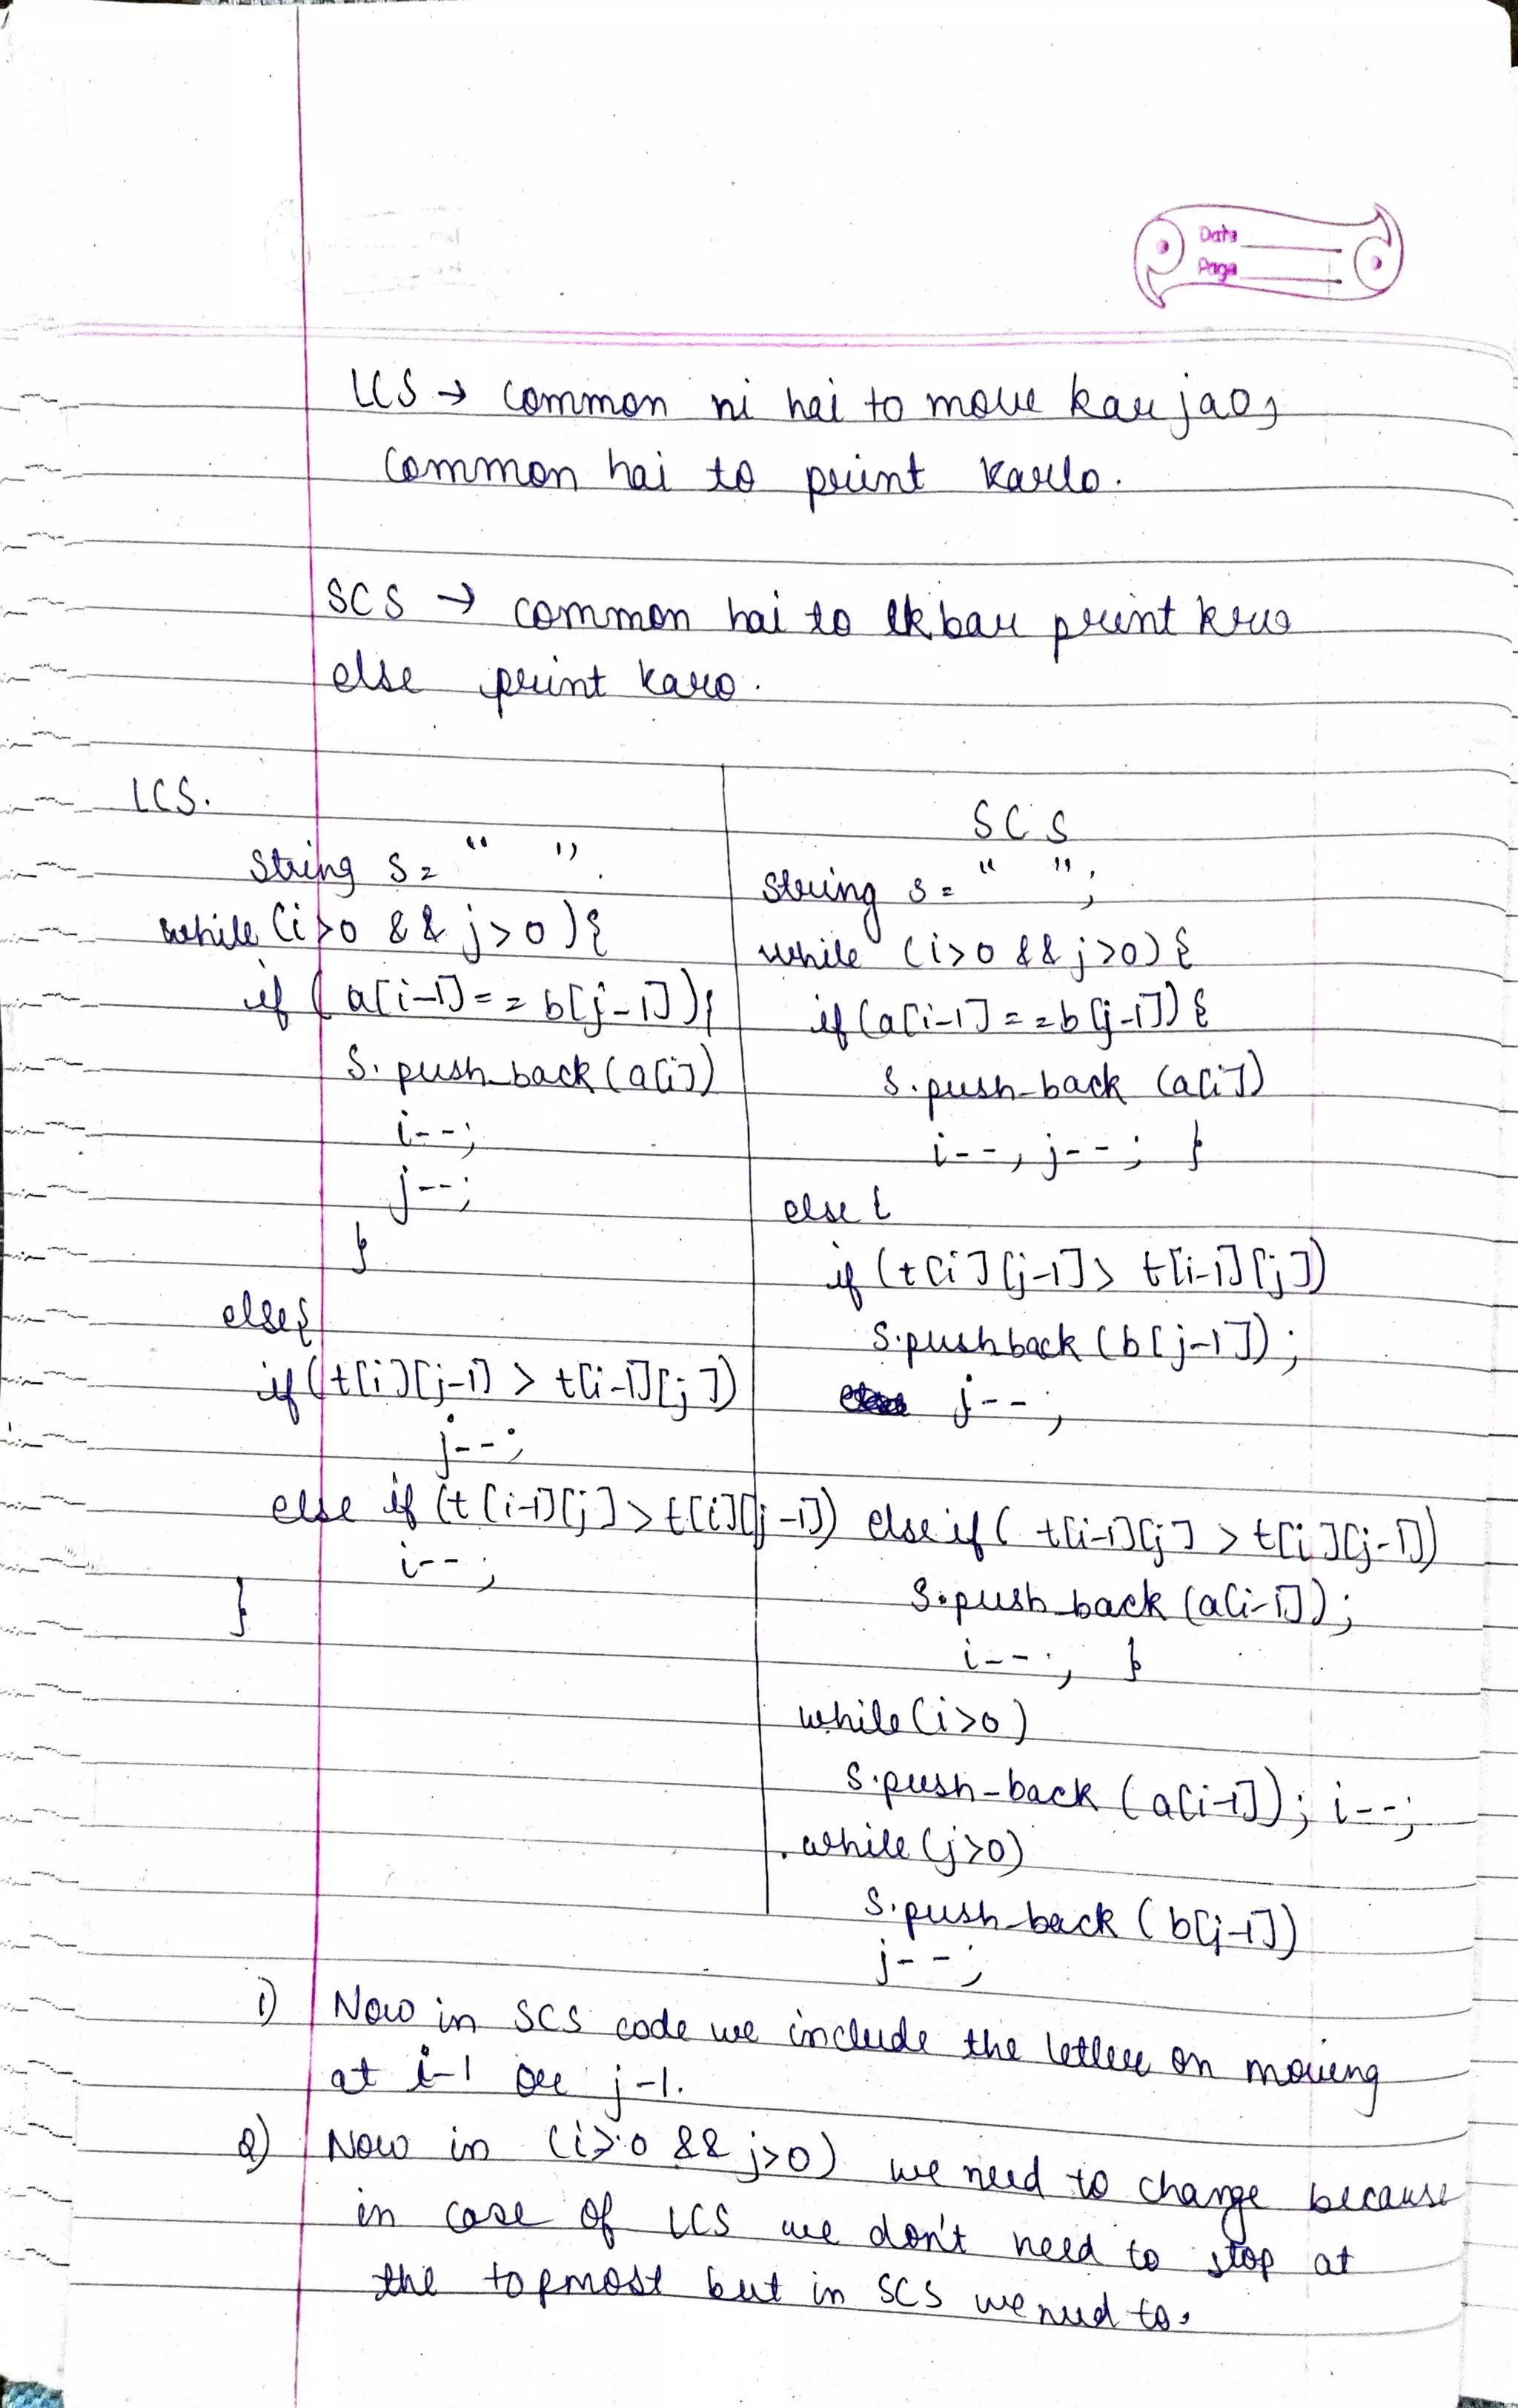 Date
Page
LCS → common ni hai to move kar jao,
common hai to print karlo.
SCS → common hai to ek bar print kro
else print karo.
LCS.
String s = " ".
while (i>0 && j>0){
if (a[i-1]==b[j-1]){
S.push_back(a[i])
i--;
j--;
}
else{
if(t[i][j-1] > t[i-1][j])
j--;
else if (t[i-1][j]>t[i][j-1])
i--;
}
SCS
string s = " ";
while (i>0 && j>0){
if(a[i-1]==b[j-1]){
S.push-back (a[i])
i--, j--; }
else {
if (t[i][j-1]> t[i-1][j])
S.pushback (b[j-1]);
j--;
else if ( t[i-1][j] > t[i][j-1])
S.push_back (a[i-1]);
i--; }
while(i>0)
S.push-back (a[i-1]); i--;
while(j>0)
S.push_back (b[j-1])
j--;
1) Now in SCS code we include the letter on moving
at i-1 or j-1.
2) Now in (i>0 && j>0) we need to change because
in case of LCS we don't need to stop at
the topmost but in SCS we need to.